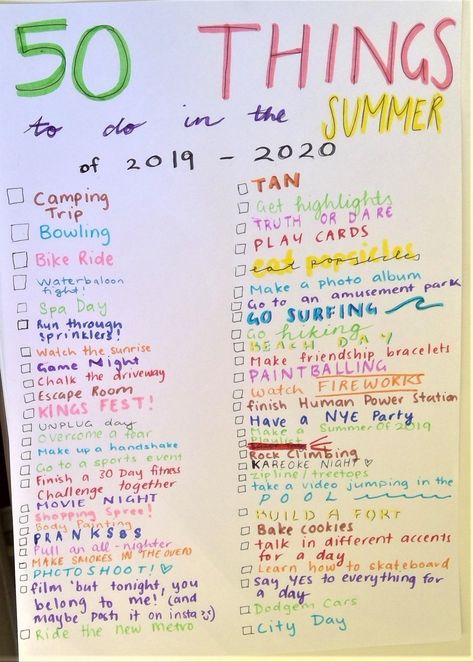 50 THINGS
to do in the SUMMER
of 2019 - 2020
Camping
Trip
Bowling
Bike Ride
Waterbaloon
fight!
Spa Day
Run through
sprinklers!
Watch the sunrise
Game Night
Chalk the driveway
Escape Room
KINGS FEST!
UNPLUG day
Overcome a fear
Make up a handshake
Go to a sports event
Finish a 30 Day fitness
Challenge together
MOVIE NIGHT
Shopping Spree!
Body Painting
PRANKSSS
Pull an all-nighter
MAKE SMORES IN THE OVEN
PHOTOSHOOT! ♡
film "but tonight, you
belong to me! (and
maybe post it on insta
Ride the new metro
TAN
Get highlights
TRUTH OR DARE
PLAY CARDS
eat popsicles
Make a photo album
Go to an amusement park
GO SURFING
Go hiking
BEACH DAY
Make friendship bracelets
PAINTBALLING
watch FIREWORKS
finish Human Power Station
Have a NYE Party
Make a Summer Of 2019
Playlist
Rock Climbing
KAREOKE NIGHT ♡
zipline/treetops
take a video jumping in the
POOL
BUILD A FORT
Bake cookies
talk in different accents
for a day
Learn how to skateboard
Say YES to everything for
a day
Dodgem Cars
City Day